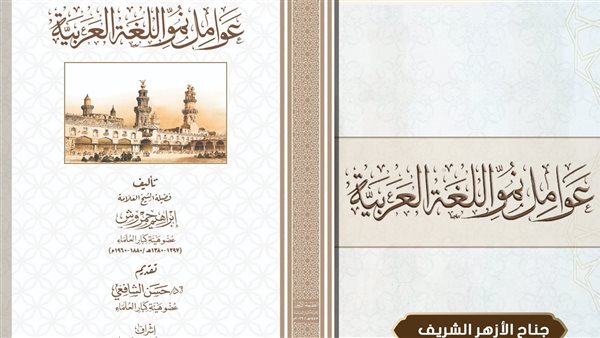 عوامل نمو اللغة العربية
تأليف
فضيلة الشيخ العلامة
إبراهيم حمروش
عضو هيئة كبار العلماء
(١٢٩٧-١٣٨٠هـ/١٨٨٠-١٩٦٠م)
تقديم
أ.د/ حسن الشافعي
عضو هيئة كبار العلماء
إشراف:
عوامل نمو اللغة العربية
جناح الأزهر الشريف